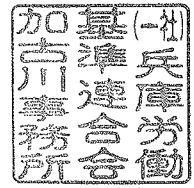 (社)兵庫労働
基準連合会
加古川事務所